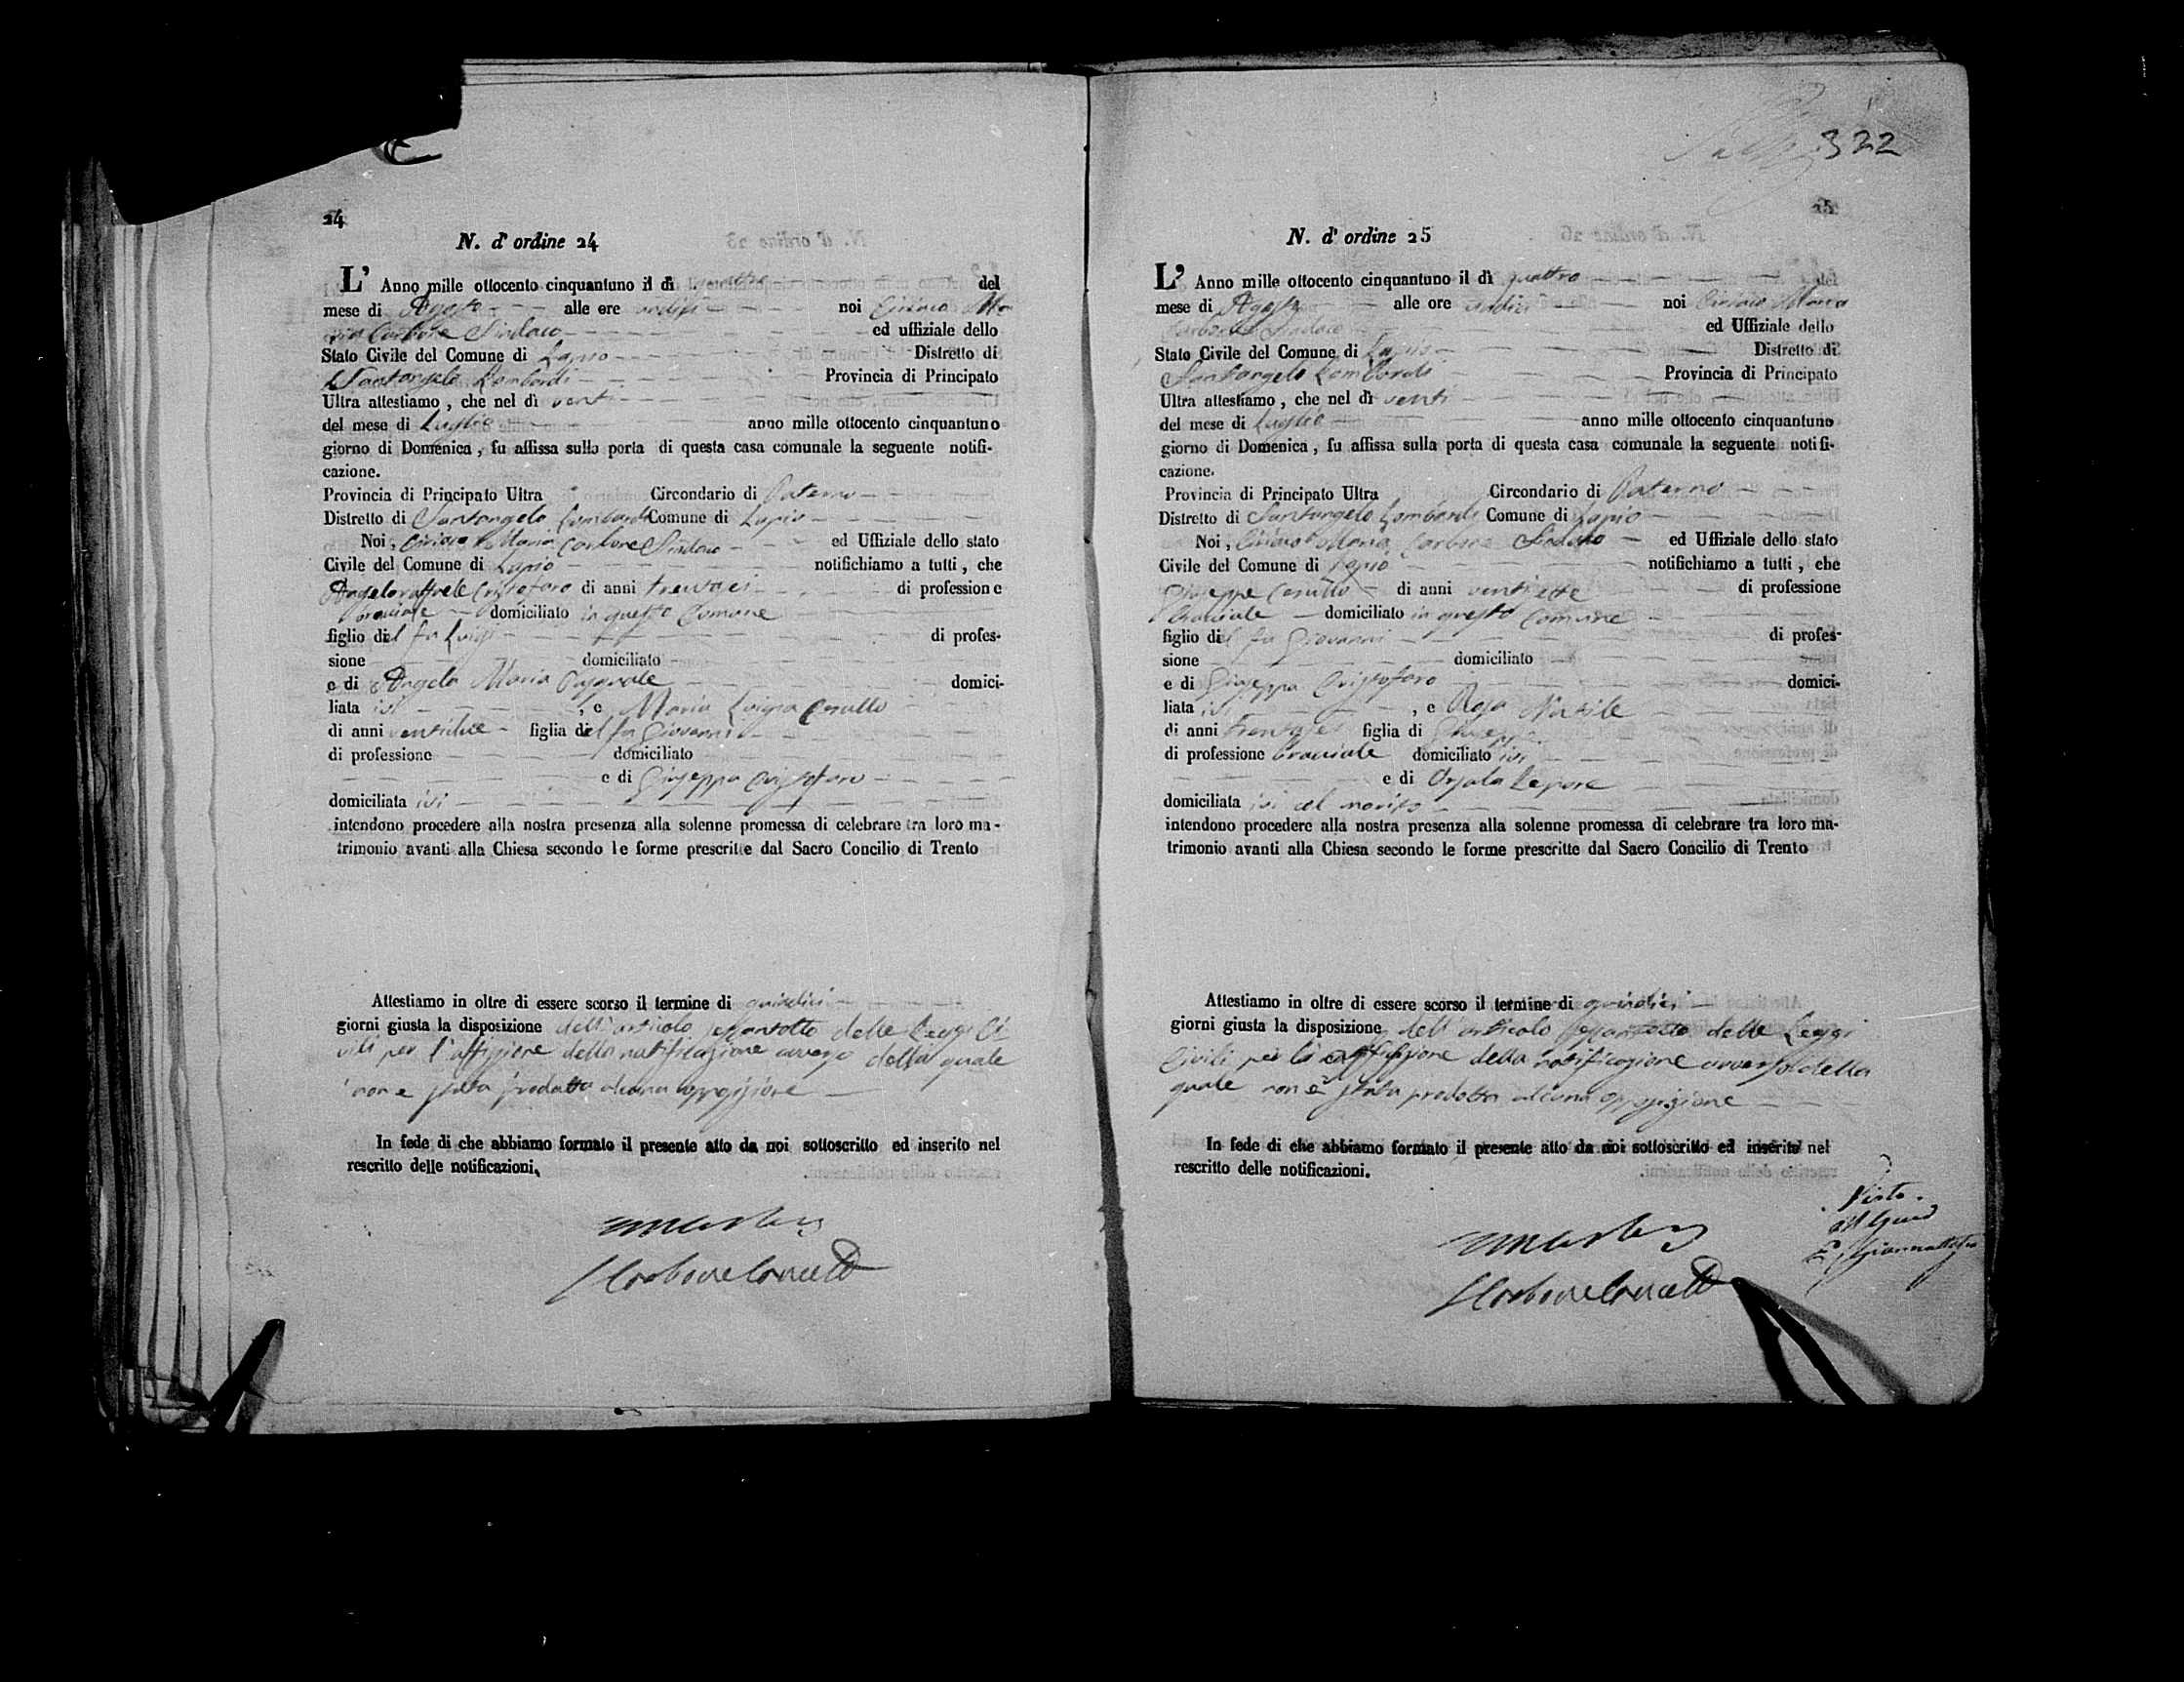 24
N. d' ordine 24
L' Anno mille ottocento cinquantuno il dì quattro del
mese di Agosto alle ore undici noi Ciriaco Ma
ria Carbone Sindaco ed uffiziale dello
Stato Civile del Comune di Lapio Distretto di
Santangelo Lombardi Provincia di Principato
Ultra attestiamo, che nel dì venti
del mese di Luglio anno mille ottocento cinquantuno
giorno di Domenica, fu affissa sulla porta di questa casa comunale la seguente notifi-
cazione.
Provincia di Principato Ultra Circondario di Paterno
Distretto di Santangelo Lombardi Comune di Lapio
Noi, Ciriaco Maria Carbone Sindaco ed Uffiziale dello stato
Civile del Comune di Lapio notifichiamo a tutti, che
Angeloraffaele Cristofaro di anni trentasei di professione
bracciale domiciliato in questo Comune
figlio del fu Luigi di profes-
sione domiciliato
e di Angela Maria Pasquale domici-
liata ivi , e Maria Luigia Carullo
di anni ventidue figlia del fu Giovanni
di professione domiciliato
e di Giuseppa Cristofaro
domiciliata ivi
intendono procedere alla nostra presenza alla solenne promessa di celebrare tra loro ma-
trimonio avanti alla Chiesa secondo le forme prescritte dal Sacro Concilio di Trento
Attestiamo in oltre di essere scorso il termine di quindici
giorni giusta la disposizione dell'articolo sessantotto delle Leggi Ci
vili per l'affissione della notificazione avverso della quale
non e stata prodotta alcuna opposizione
In fede di che abbiamo formato il presente atto da noi sottoscritto ed inserito nel
rescritto delle notificazioni.
Carbone
322
25
N. d' ordine 25
L' Anno mille ottocento cinquantuno il dì quattro del
mese di Agosto alle ore undici noi Ciriaco Maria
Carbone Sindaco ed Uffiziale dello
Stato Civile del Comune di Lapio Distretto di
Santangelo Lombardi Provincia di Principato
Ultra attestiamo, che nel dì venti
del mese di Luglio anno mille ottocento cinquantuno
giorno di Domenica, fu affissa sulla porta di questa casa comunale la seguente notifi-
cazione.
Provincia di Principato Ultra Circondario di Paterno
Distretto di Santangelo Lombardi Comune di Lapio
Noi, Ciriaco Maria Carbone Sindaco ed Uffiziale dello stato
Civile del Comune di Lapio notifichiamo a tutti, che
Giuseppe Carullo di anni ventisette di professione
bracciale domiciliato in questo Comune
figlio del fu Giovanni di profes-
sione domiciliato
e di Giuseppa Cristofaro domici-
liata ivi , e Rosa Natile
di anni trentasei figlia di Giuseppe
di professione bracciale domiciliato ivi
e di Orsola Lepore
domiciliata ivi col marito
intendono procedere alla nostra presenza alla solenne promessa di celebrare tra loro ma-
trimonio avanti alla Chiesa secondo le forme prescritte dal Sacro Concilio di Trento
Attestiamo in oltre di essere scorso il termine di quindici
giorni giusta la disposizione dell'articolo sessantotto delle Leggi
Civili per la affissione della notificazione avverso della
quale non è stata prodotta alcuna opposizione
In fede di che abbiamo formato il presente atto da noi sottoscritto ed inserito nel
rescritto delle notificazioni.
Carbone
Visto.